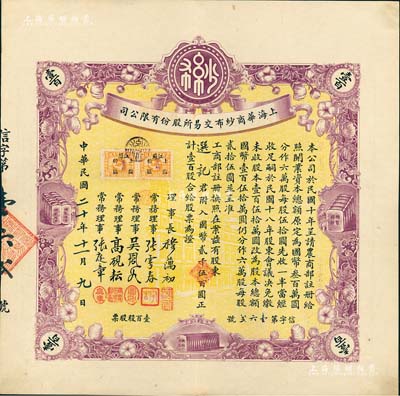 壹百
壹百
上海華商紗布交易所股份有限公司
本公司於民國十年呈請農商部註冊給
照開業資本總額原定為國幣叁百萬圓
分作六萬股每股伍拾圓先收一半當經
收足嗣於民國十八年股東會議決免繳
未收股本壹百伍拾萬圓改為股本總額
國幣壹百伍拾萬圓仍分作六萬股每股
貳拾伍圓並呈准
工商部註冊換照在案茲有股東
選記君附入國幣貳千伍百圓正
計壹百股合給股票為證
理事長 穆藕初
常務理事 張雲春
常務理事 吳恩
常務理事 高硯耘
常務理事 張
中華民國二十年十一月九日
信字第壹六弍號
壹百股股票
信字第
號